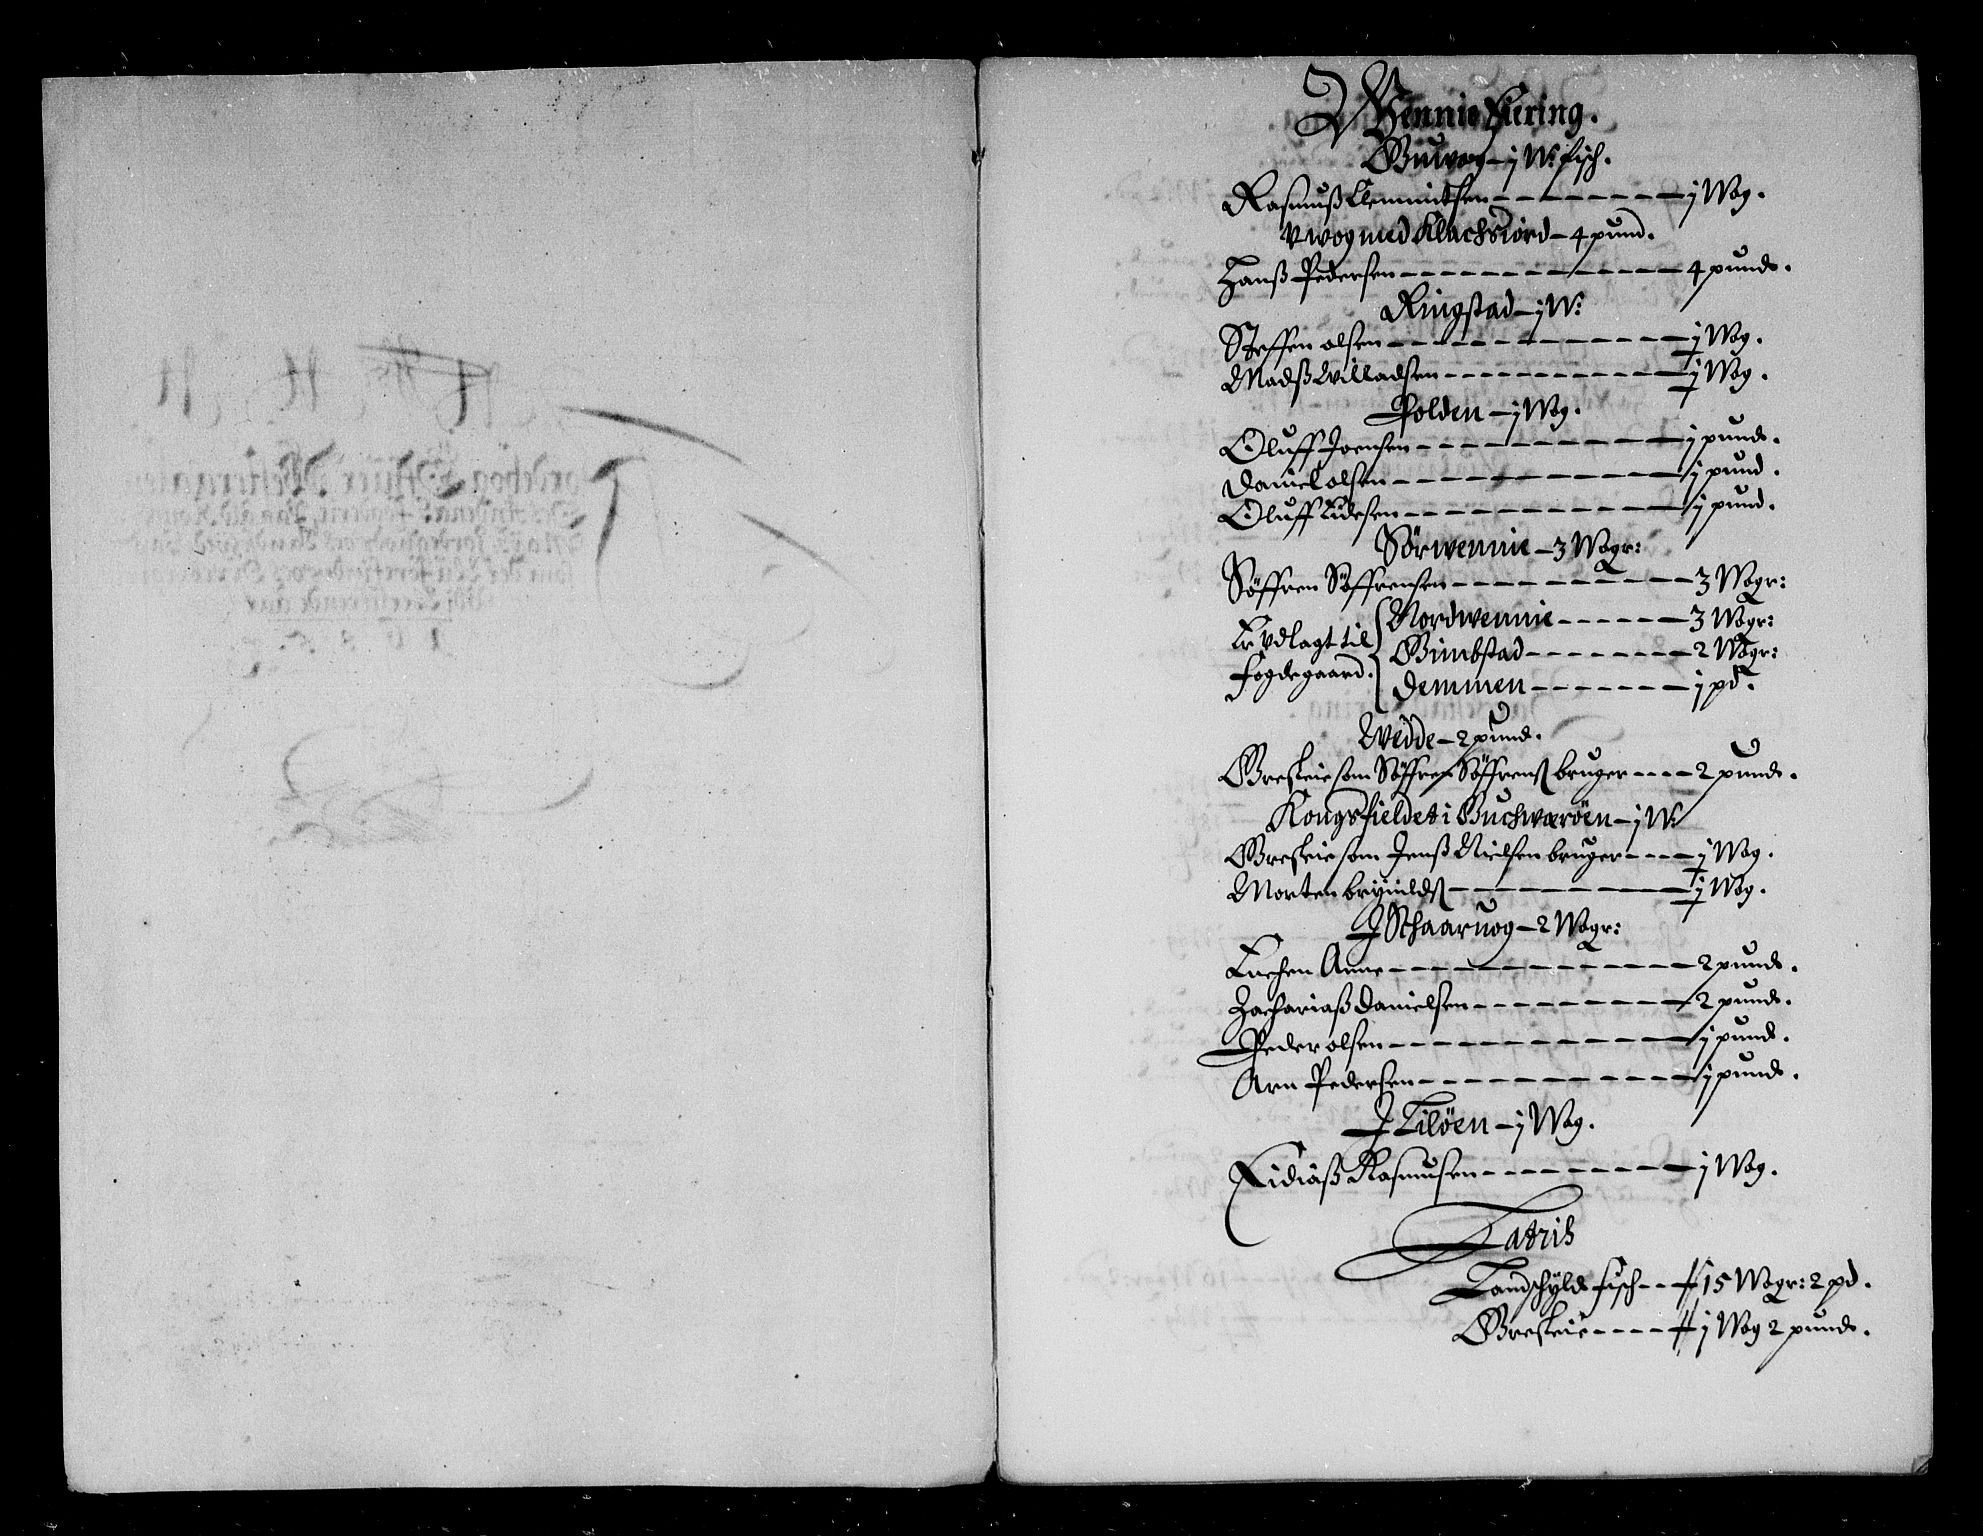 Wennie Fiering.
Giuvog – j W: fisch.
Rasmuß Clemmitsen – j Wog.
Vwog med Klachsiord – 4 pund.
Hanß Pedersen – 4 pund.
Ringstad – j W:
Steffen olsen – j Wog.
Madß Willadsen – j Wog.
Polden – j Wog.
Oluff Joensen – j pund.
Daniel olsen – j pund.
Oluff Ludesen – j pund.
Sörwennie – 3 Wogr:
Söffren Söffrensen – 3 Wogr:
Er vdlagt til
fogdegaard.
Nordwennie – 3 Wogr:
Gimbstad – 2 Wogr:
Demmen – j pd.
Wedde – 2 pund.
Greskeie som Söffren Söffrenß bruger – 2 pund.
Kongsfieldet i Buchwæröen – j W:
Greskeie som Jenß Nielsen bruger – j Wog.
Morten brÿnildß – j Wog.
J Schaaruog – 2 Wogr:
Enchen Anne – 2 pund.
Zachariaß Danielsen – 2 pund.
Peder olsen – j pund.
Arn Pedersen – j pund.
J Lilöen – j Wog.
Eidiaß Rasmusen – j Wog.
Latris
Landschÿld fisch – 15 Wogr: 2 pd.
Greskeie – j Wog 2 pund.